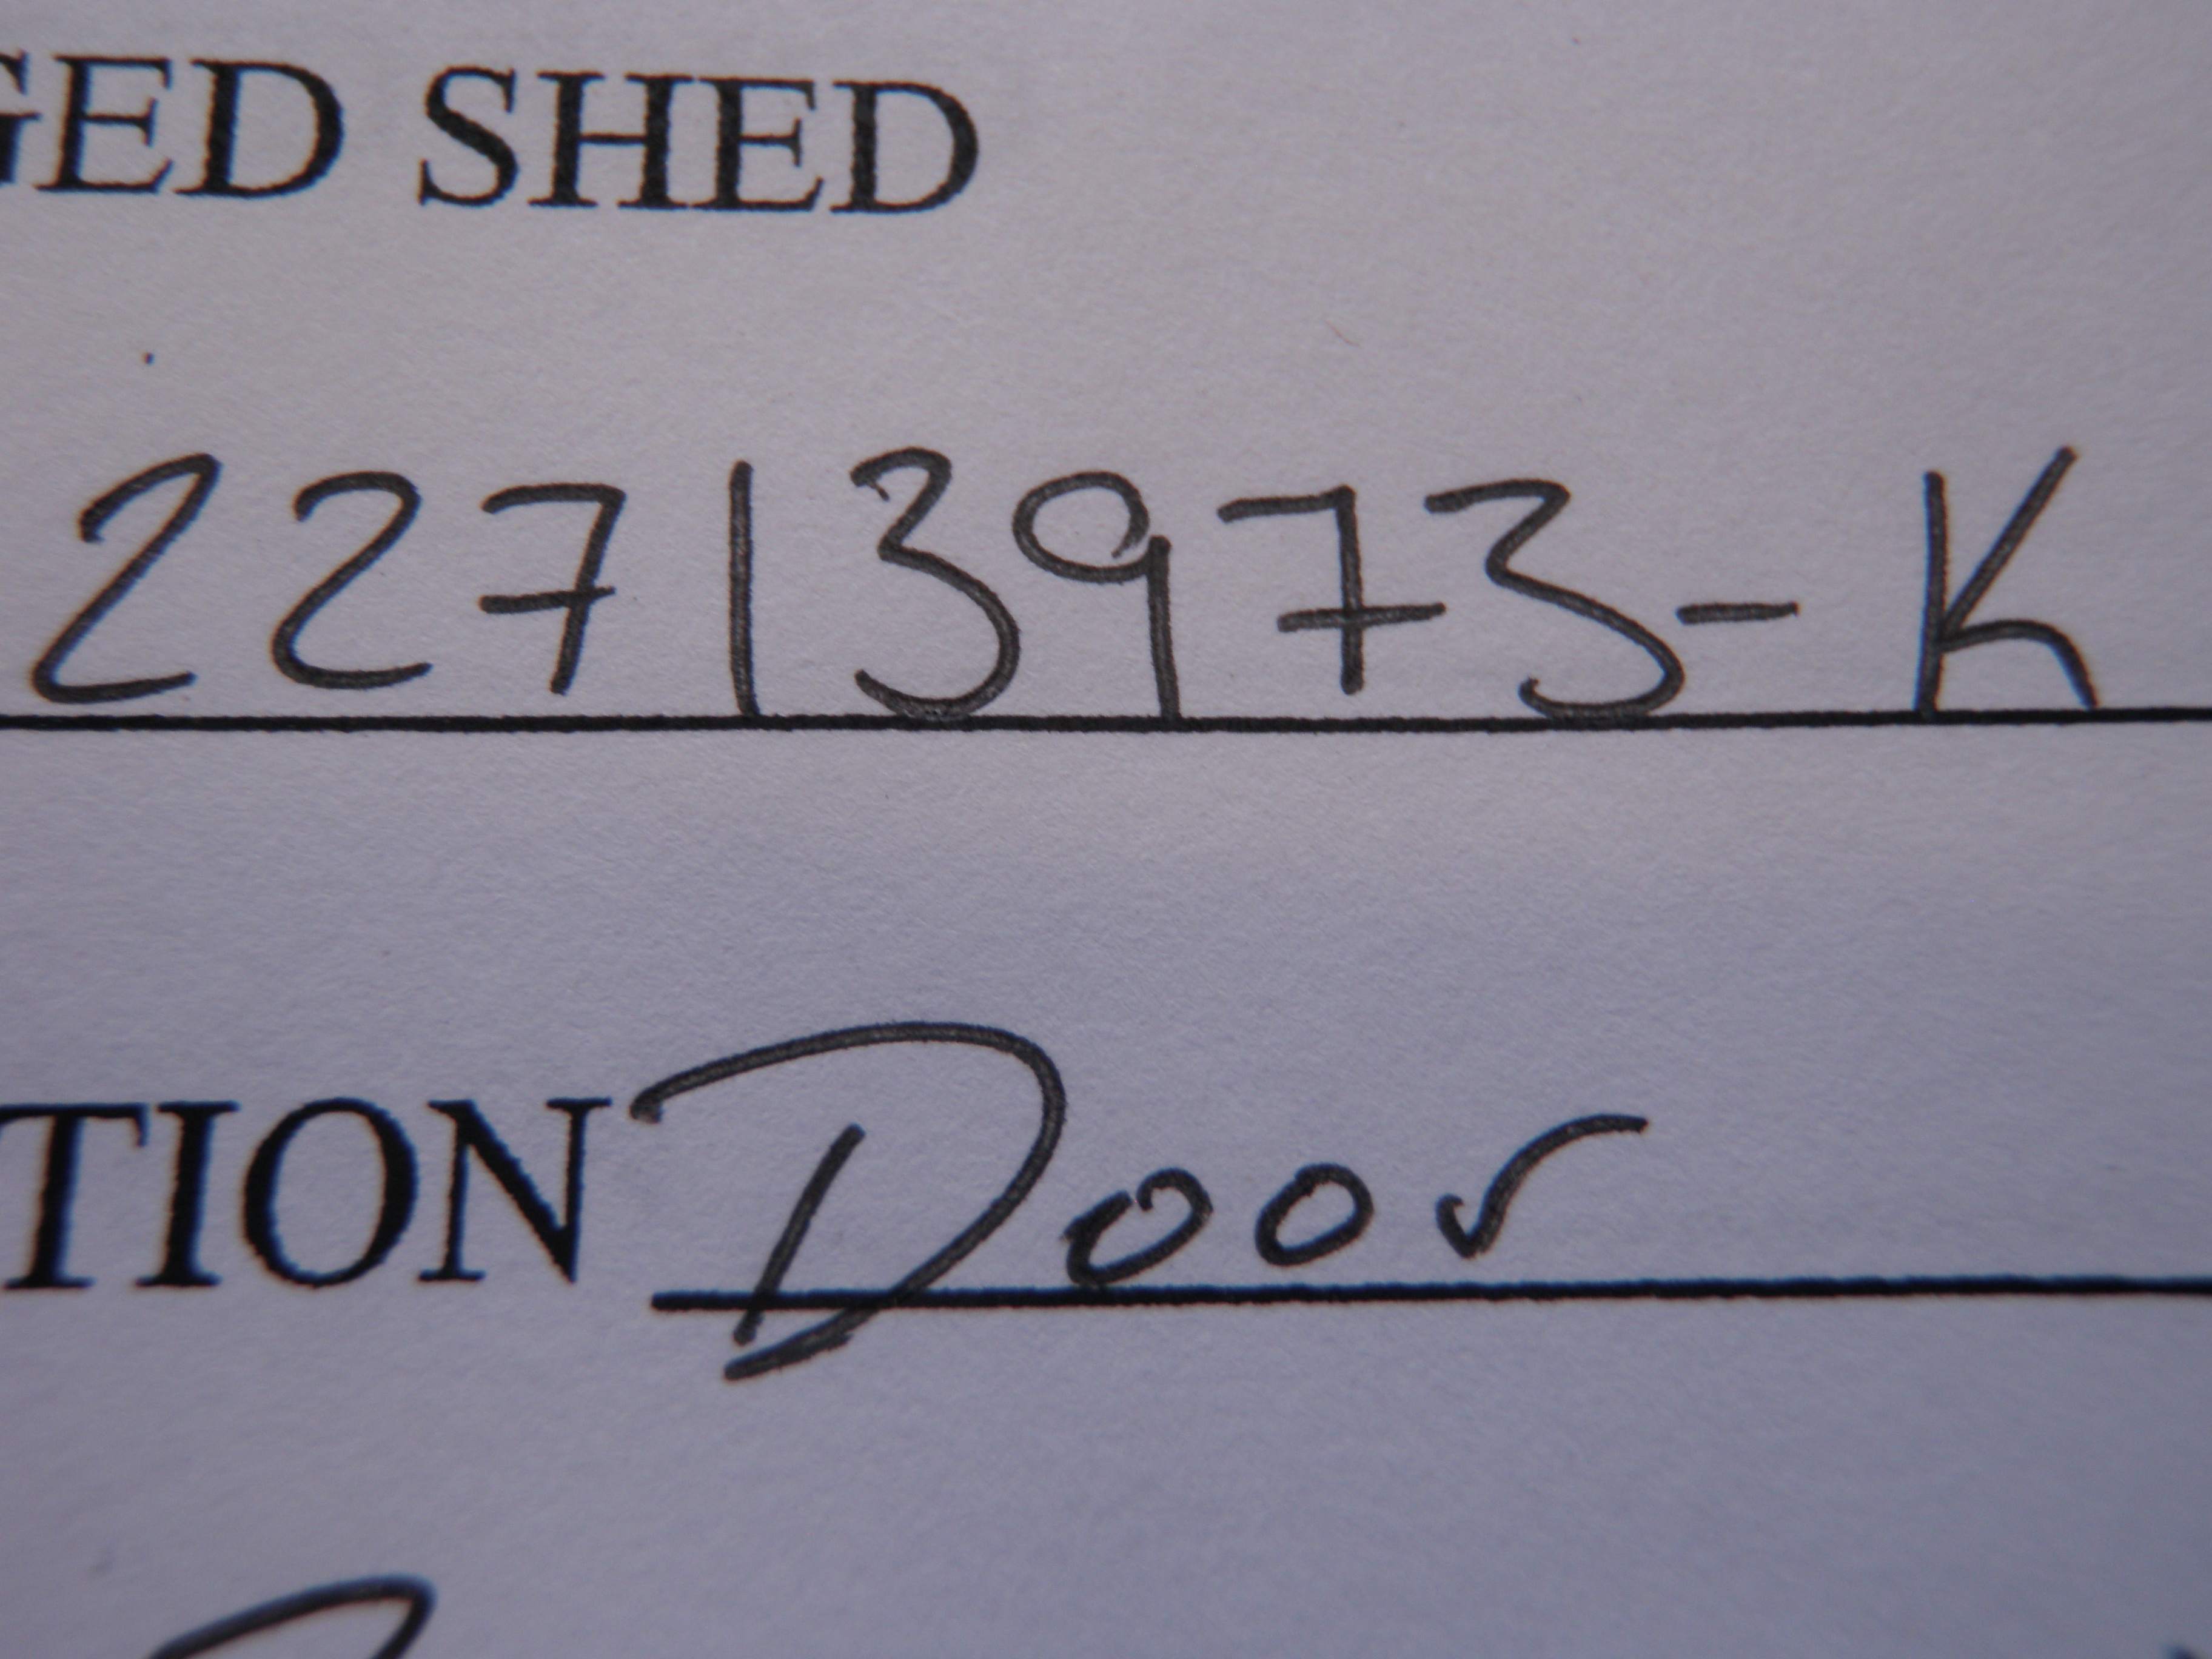 GED SHED
22713973-K
TION Door